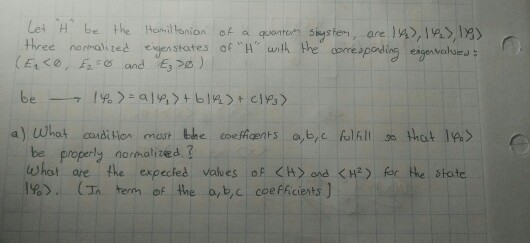 Let "H" be the Hamiltonian of a quantum skystem, are |φ₁>, |φ₂>, |φ₃>
three normalized eigenstates of "H" with the corresponding eigenvalues:
(E₁<0, E₂=0 and E₃>0)
be → |φ₀> = a|φ₁> + b|φ₂> + c|φ₃>
a) What condition most the coefficients a,b,c fulfill so that |φ₀>
be properly normalized.?
What are the expected values of <H> and <H²> for the state
|φ₀>. (In term of the a,b,c coefficients]